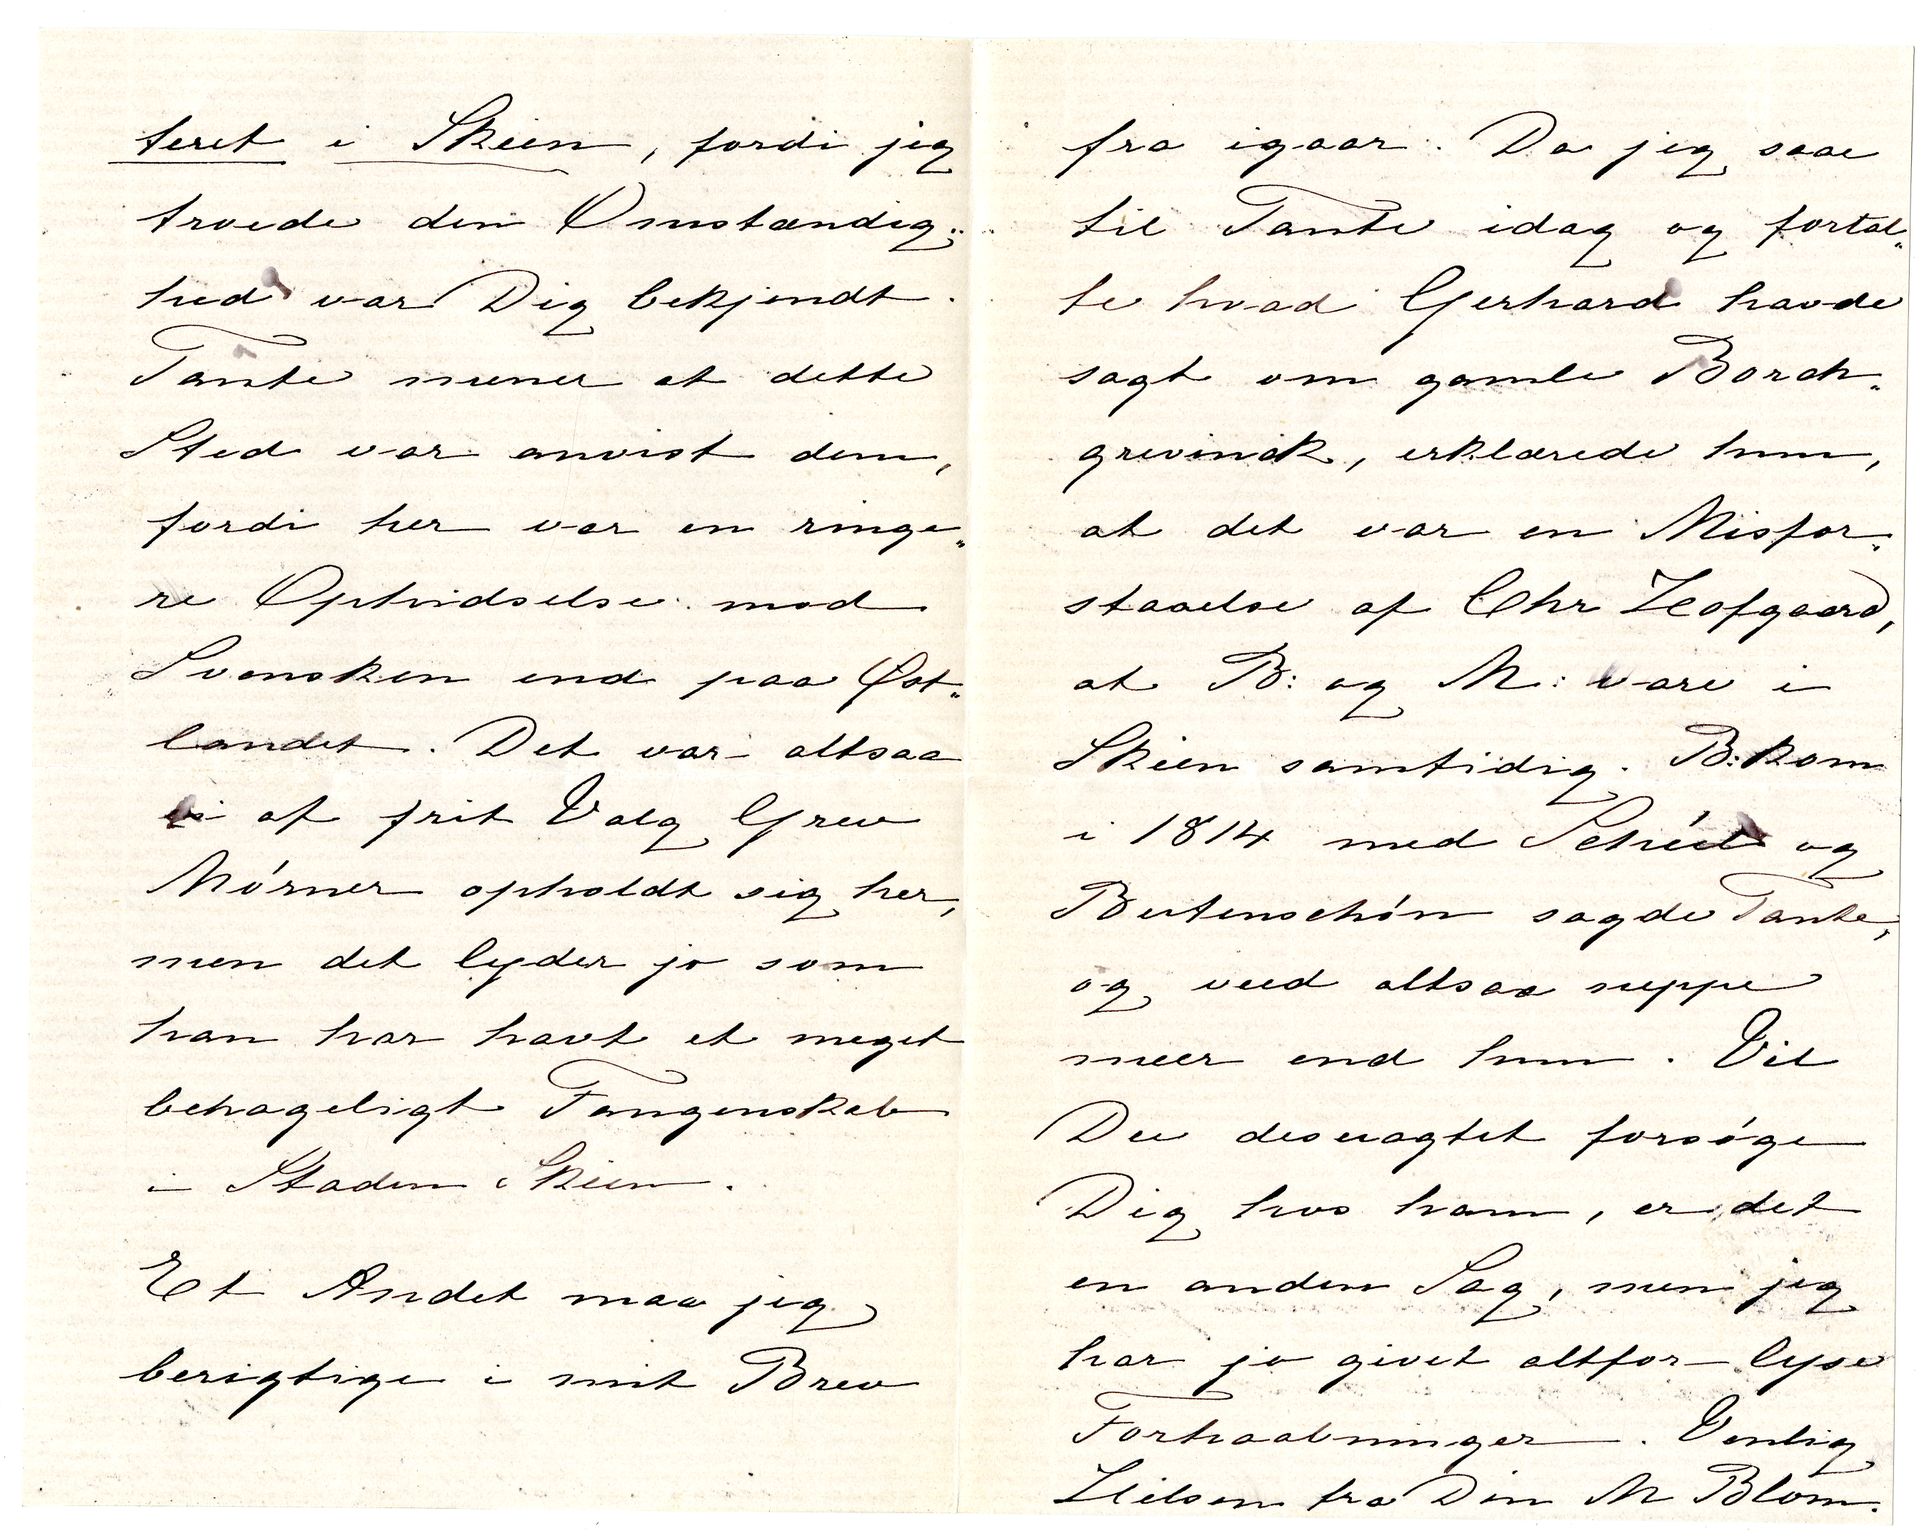 teret i Skien, fordi jeg
troede den Omstændig-
hed var Dig bekjendt.
Tante mener at dette
Sted var anvist dem,
fordi her var en ringe-
re Ophidselse mod
Svensken end paa Øst-
landet. Det var altsaa
ei af frit Valg Grev
Mörner opholdt sig her,
men det lyder jo som
han har havt et meget
behageligt Fangenskab
i Staden Skien.
Et Andet maa jeg
berigtige i mit Brev
fra igaar. Da jeg saae
til Tante idag og fortal-
te hvad Gerhard havde
sagt om gamle Borch-
grevinck, erklærede hun,
at det var en Misfor-
staaelse af Chr Hofgaard,
at B: og M: vare i
Skien samtidig. B: kom
i 1814 med og
Butenschön sagde Tante,
og veed altsaa neppe
meer end hun. Vil
Du desuagtet forsøge
Dig hos ham, er det
en anden Sag, men jeg
har jo givet altfor lyse
Forhaabninger. Venlig
Hilsen fra Din M Blom.